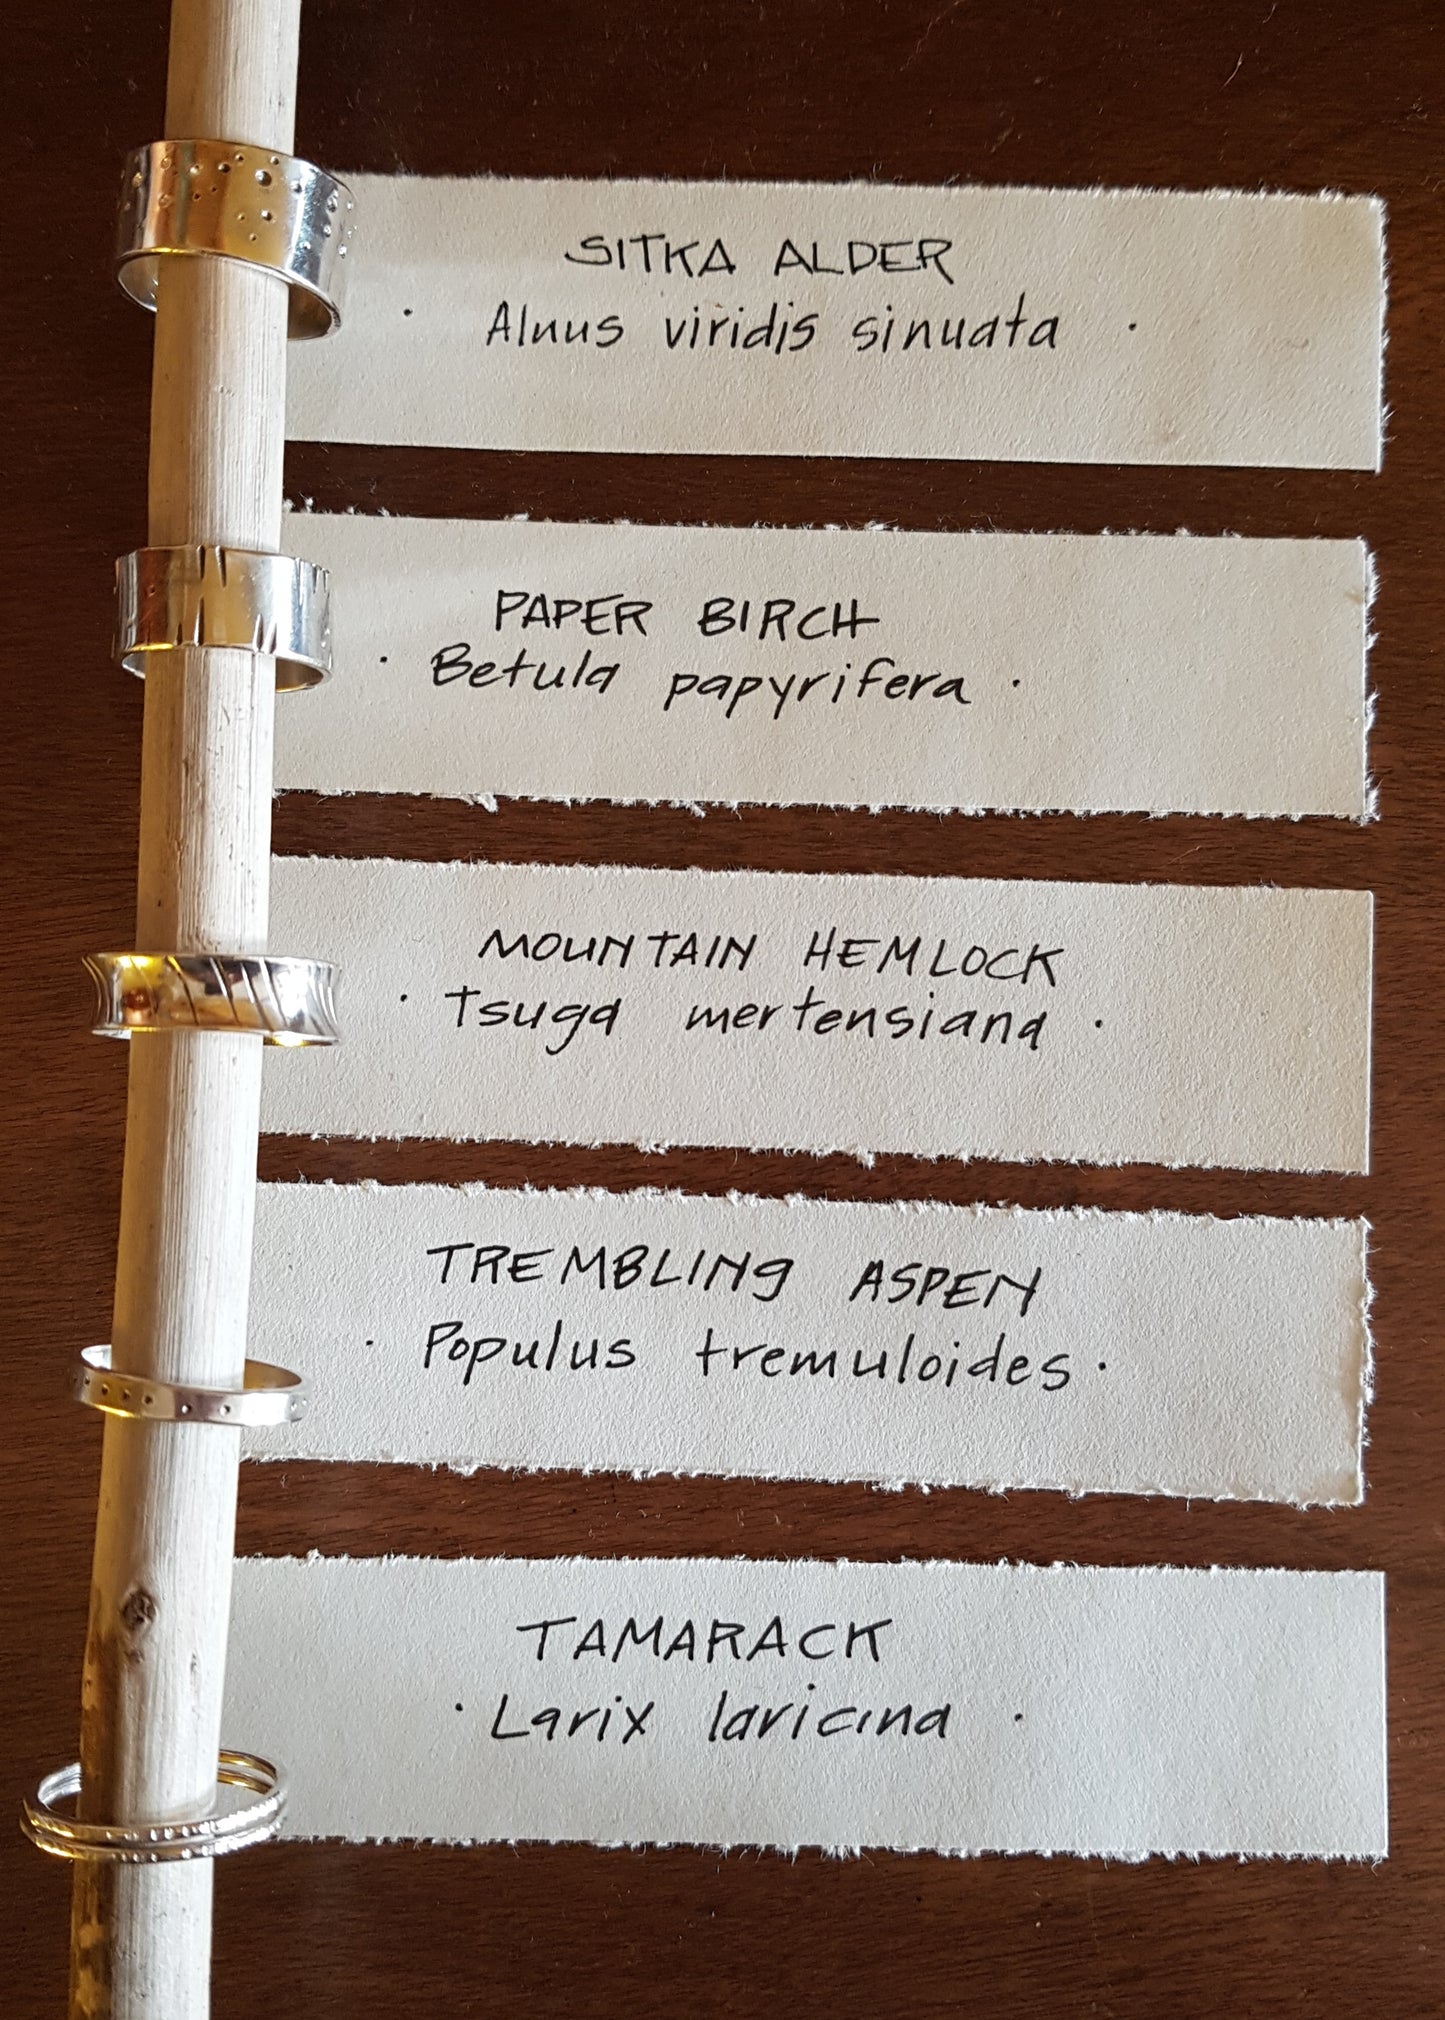 SITKA ALDER
· Alnus viridis sinuata ·
PAPER BIRCH
· Betula papyrifera ·
MOUNTAIN HEMLOCK
· Tsuga mertensiana ·
TREMBLING ASPEN
· Populus tremuloides ·
TAMARACK
· Larix laricina ·